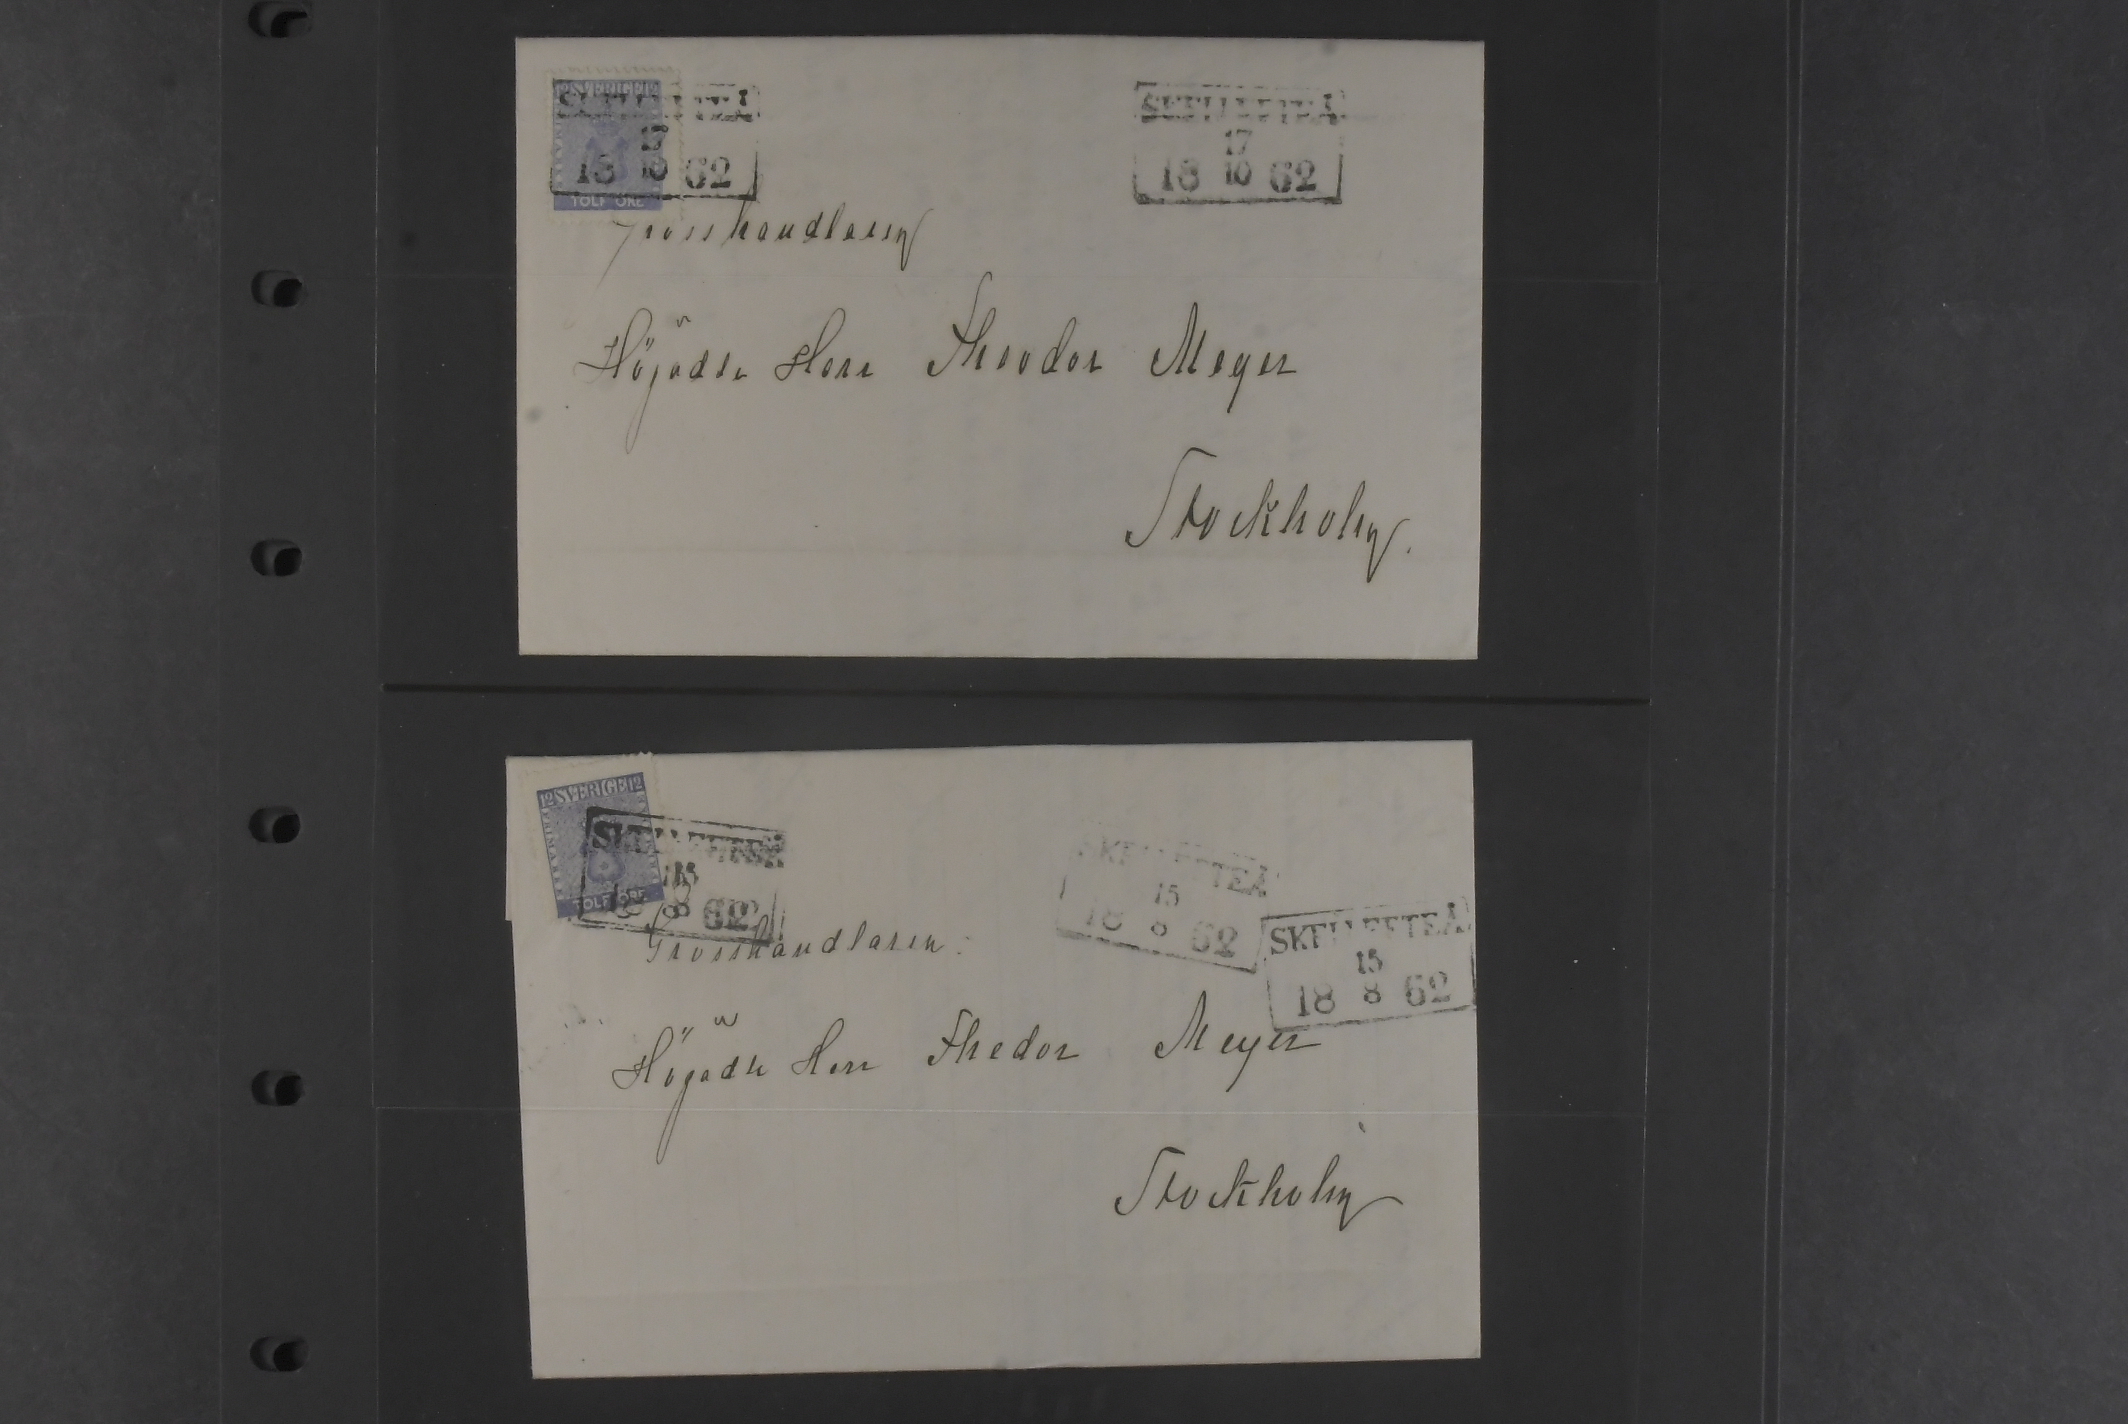 12 SVERIGE 12
SKELLEFTEÅ
17
18 10 62
TOLF ÖRE
SKELLEFTEÅ
17
18 10 62
Grosshandlaren
Högädle Herr Theodor Meyer
Stockholm.
12 SVERIGE 12
SKELLEFTEÅ
15
18 8 62
TOLF ÖRE
SKELLEFTEÅ
15
18 8 62
SKELLEFTEÅ
15
18 8 62
Grosshandlaren
Högädle Herr Thedor Meyer
Stockholm